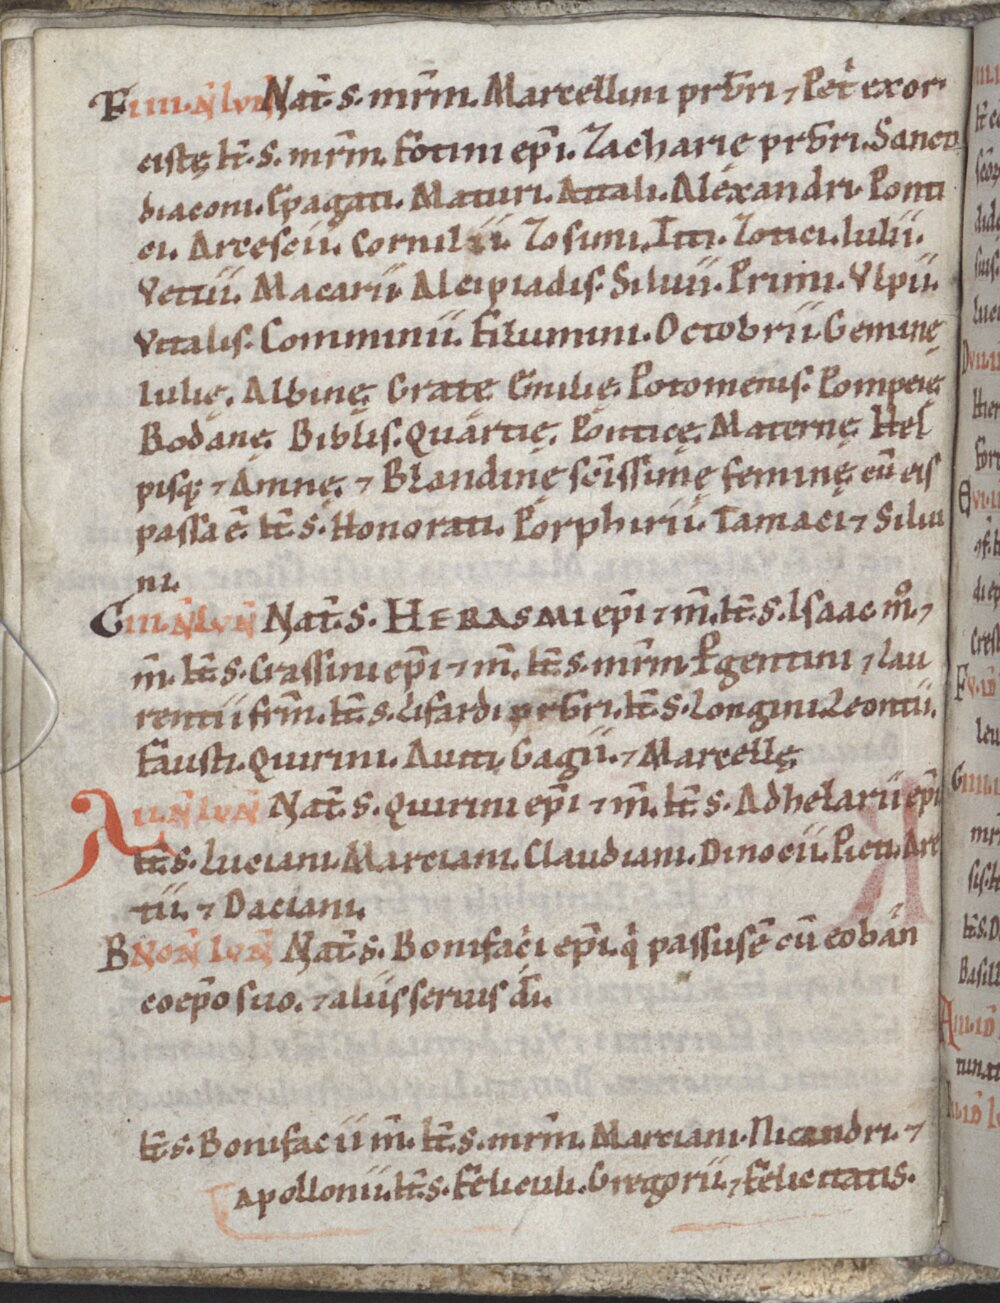 F IIII. N̄ IVN̄ Nat̄. S. mr̄m. Marcellini prb̄ri ⁊ Pet̓ exor
cistę. It̄. S. mr̄m. Fotini ep̄i. Zacharię prb̄ri. Sancti
diaconi. Epagati. Maturi. Attali. Alexandri. Ponti
ci. Arescii. Cornilii. Zosimi. Titi. Zotici. Iulii.
Vettii. Macarii. Alcipiadis. Siluii. Primi. Vlpii.
Vitalis. Comminii. Filumini. Octobrii. Geminę
Iulię. Albinę. Gratę. Emilię. Potomenis. Pompeię.
Bodanę. Biblis. Quartię. Ponticę. Maternę. Hel
pisq; ⁊ Amnę. ⁊ Blandinę sc̄issimę feminę. cū eis
passa ē. It̄. S. Honorati. Porphirii. Tamaci ⁊ Silui
ni.
G III. N̄ IVN̄ Nat̄. S. HERASMI ep̄i ⁊ m̄. It̄. S. Isaac mo̊. ⁊
m̄. It̄. S. Crassini ep̄i ⁊ m̄. It̄. S. mr̄m Pgentini ⁊ Lau
rentii fr̄m. It̄. S. Lifardi prb̄ri. It̄. S. Longini. Leontii.
Fausti. Quirini. Aucti. Gagii. ⁊ Marcellę.
A II. N̄ IVN̄ Nat̄. S. Quirini ep̄i ⁊ m̄. It̄. S. Adhelarii ep̄i
It̄. S. Luciani. Marciani. Claudiani. Dinocii. Picti. Are
tii. ⁊ Daciani.
B NON̄ IVN̄ Nat̄. S. Bonifacii ep̄i. q̓ passus ē cū eoban
coep̄o suo. ⁊ aliis seruis dī.
It̄. S. Bonifacii m̄. It̄. S. mr̄m. Marciani. Nicandri. ⁊
Apollonii. It̄. S. Feliculi. Gregorii. ⁊ Felicitatis.